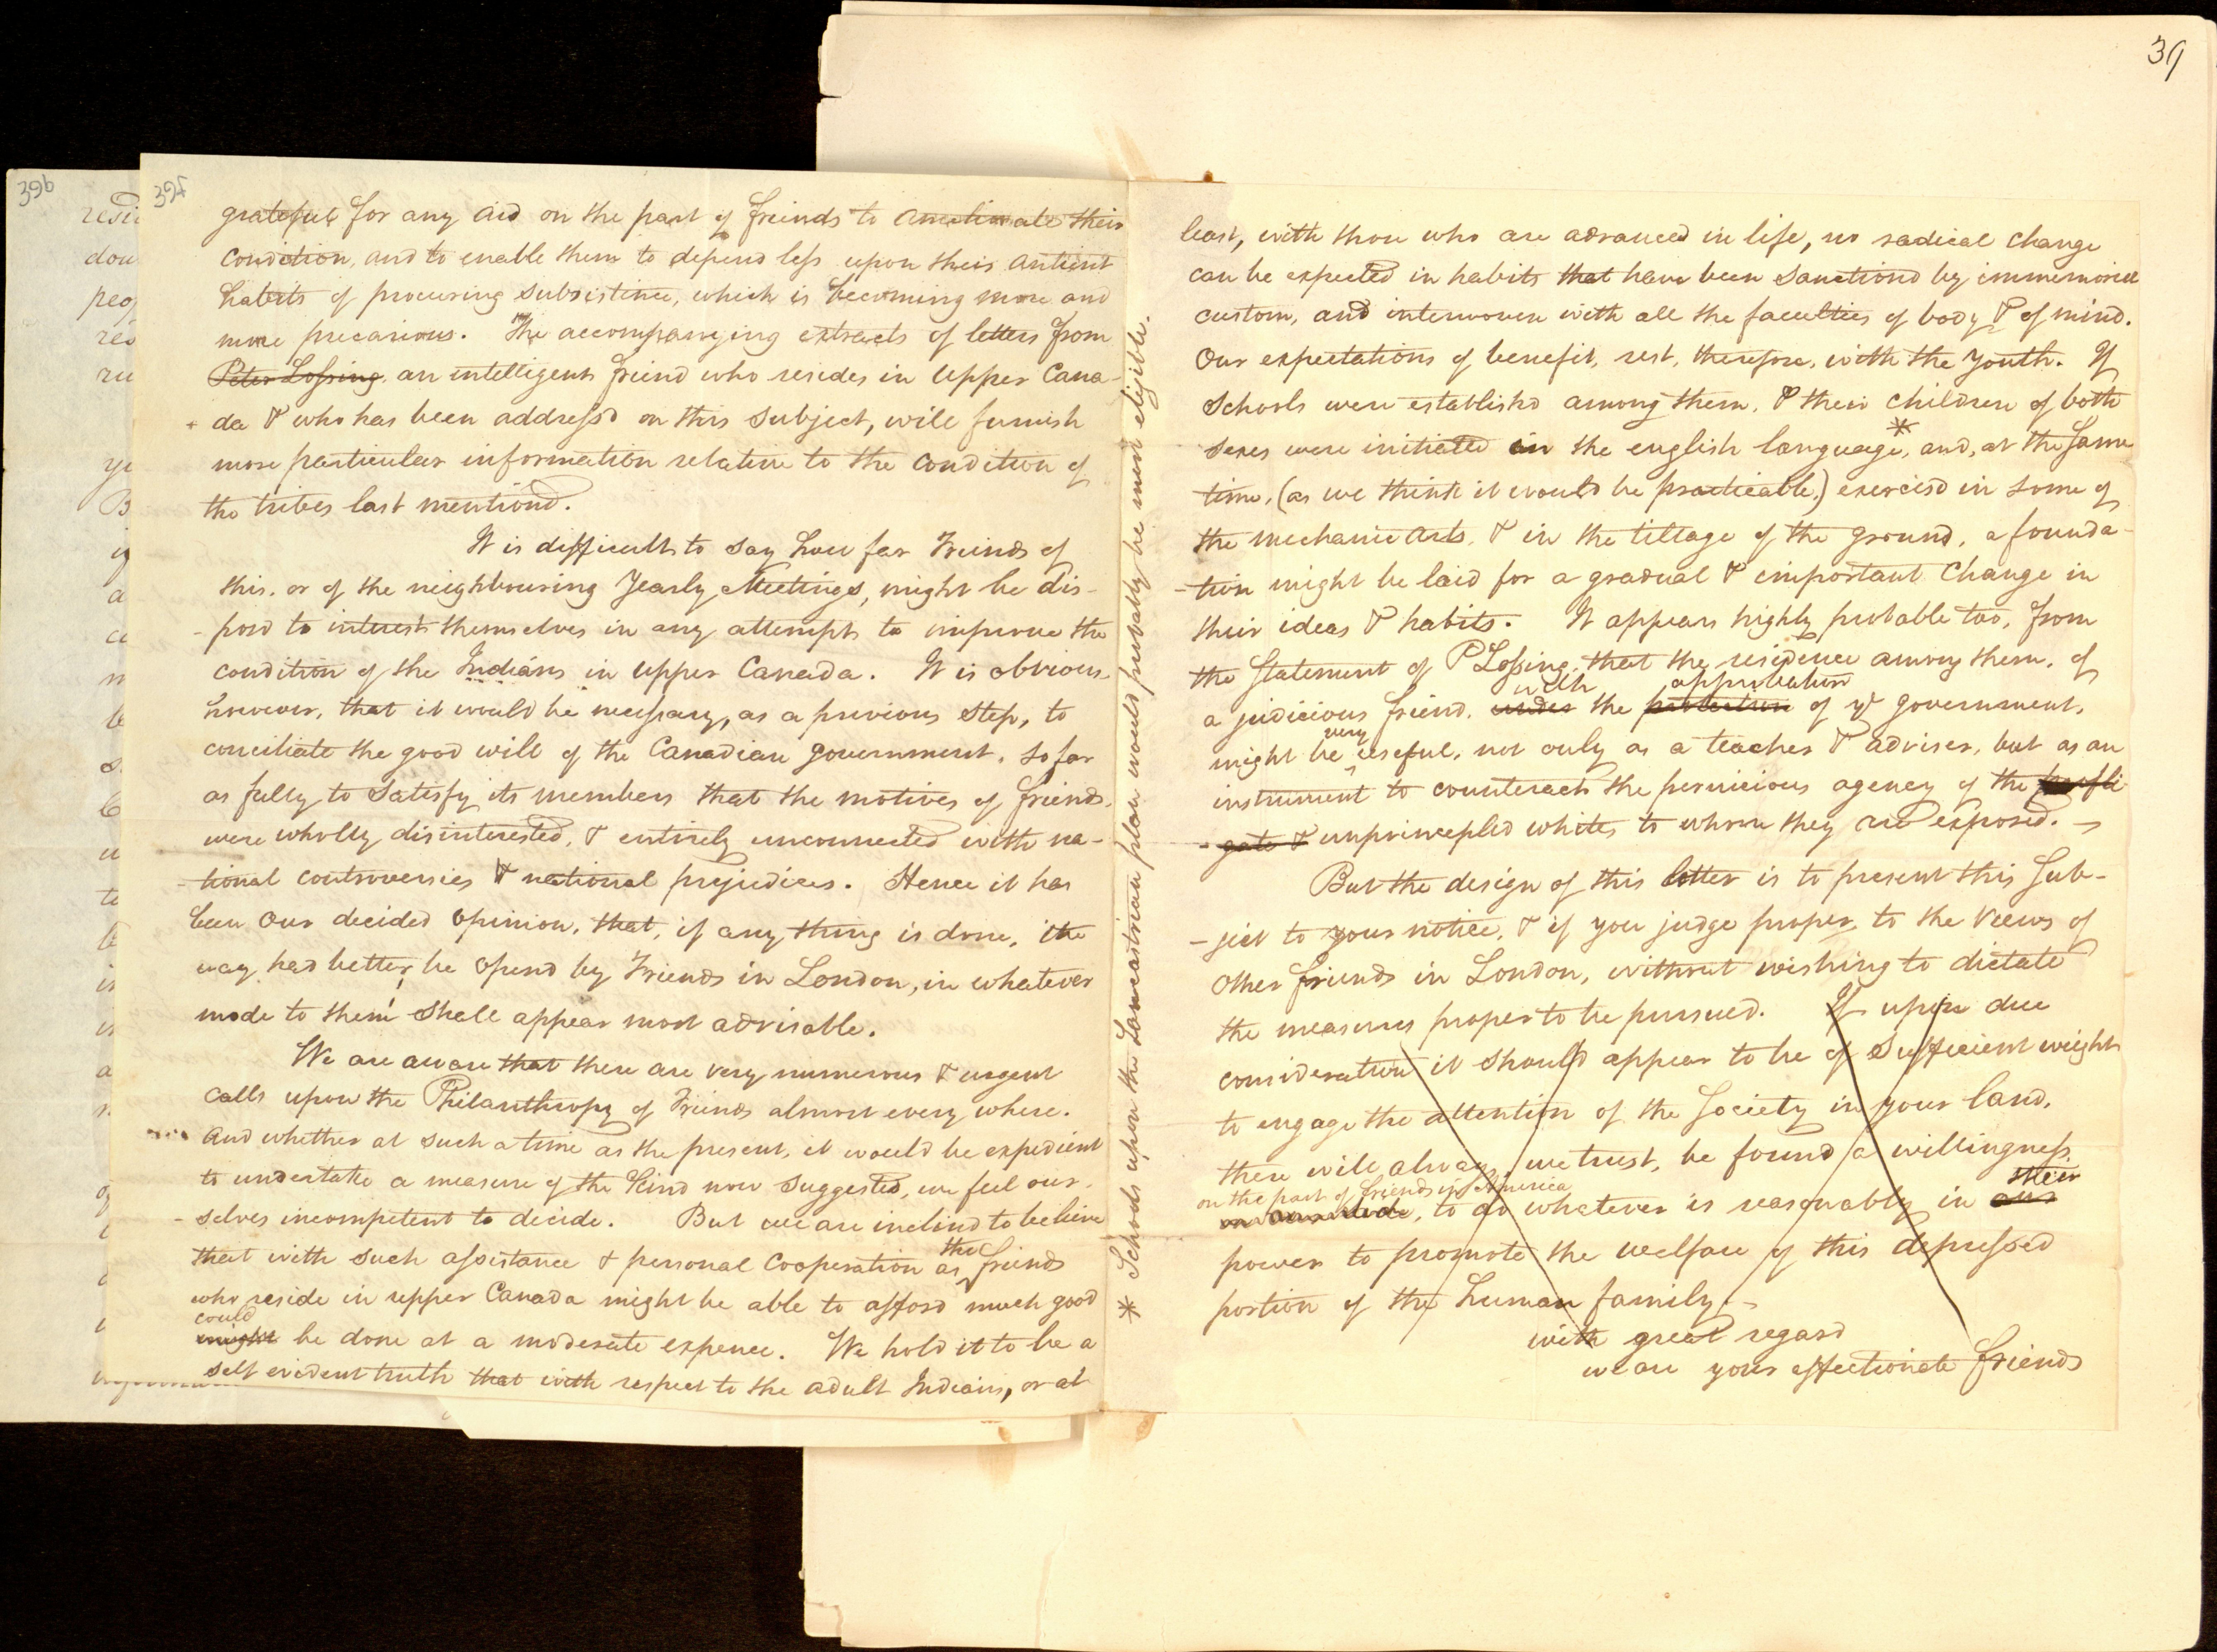 39
39b
39f
grateful for any aid on the part of freinds to ameliorate their
condition, and to enable them to depend less upon their antient
habits of procuring subsistence, which is becoming more and
more precarious. The accompanying extracts of letters from
Peter Lossing, an intelligent friend who resides in Upper Cana-
da & who has been address'd on this subject, will furnish
more particular information relative to the condition of
the tribes last mention'd.
It is difficult to say how far Freinds of
this, or of the neighbouring Yearly Meetings, might be dis-
-posd to interest themselves in any attempt to improve the
condition of the Indians in upper Canada. It is obvious
however, that it would be necessary, as a previous step, to
conciliate the good will of the Canadian government, so far
as fully to satisfy its members that the motives of friends
were wholly disinterested, & entirely unconnected with na-
-tional controversies & national prejudices. Hence it has
been our decided opinion, that, if any thing is done, the
way had better be opend by Friends in London, in whatever
mode to them shall appear most advisable.
We are aware that there are very numerous & urgent
calls upon the Philanthropy of Friends almost every where.
And whether at such a time as the present, it would be expedient
to undertake a measure of the kind now suggested, we feel our-
-selves incompetent to decide. But we are inclind to believe
that with such assistance & personal cooperation as the friends
who reside in upper Canada might be able to afford much good
could
might be done at a moderate expence. We hold it to be a
self evident truth that with respect to the adult Indians, or at
* Schools upon the Lancastrian plan would probably be most eligible.
least, with those who are advanced in life, no radical change
can be expected in habits that have been sanctiond by immemorial
custom, and interwoven with all the faculties of body & of mind.
Our expectations of benefit, rest, therefore, with the youth. If
schools were establishd among them, & their children of both
sexes were initiated in the english language,* and, at the same
time, (as we think it would be practicable,) exercisd in some of
the mechanic arts, & in the tillage of the ground, a founda-
-tion might be laid for a gradual & important change in
their ideas & habits. It appears highly probable too, from
the statement of P Lossing, that the residence among them, of
with approbation
a judicious friend, under the protection of ye government,
very
might be useful, not only as a teacher & adviser, but as an
instrument to counteract the pernicious agency of the profli-
-gate & unprincepled whites to whom they are exposed.
But the design of this letter is to present this sub-
-ject to your notice, & if you judge proper, to the views of
other friends in London, without wishing to dictate
the measures proper to be pursued. If upon due
consideration it should appear to be of sufficient weight
to engage the attention of the Society in your land,
there will always, we trust, be found a willingness,
on the part of friends in America their
to do whatever is reasonably in our
power to promote the welfare of this depressed
portion of the human family.
with great regard
we are your affectionate friends